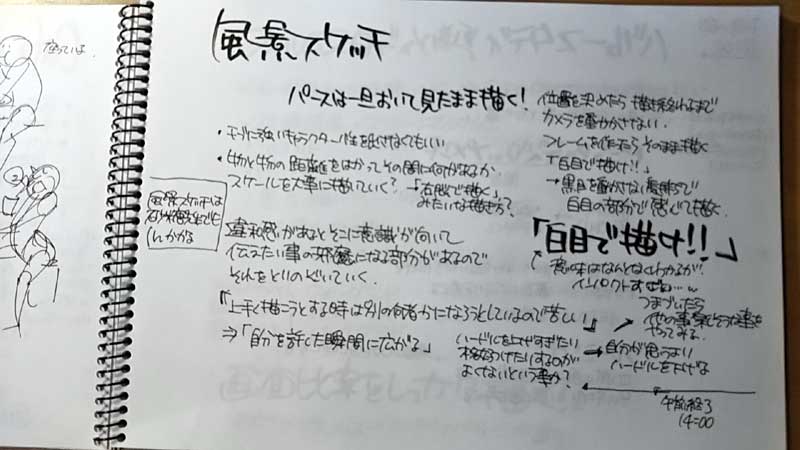 風景スケッチ
パースは一旦おいて見たまま描く!
・モデルに強いキャラクター性を出さなくてもいい
・物と物の距離をはかってその間に何があるか
スケールを大事に描いていく? →「右脳で描く」
みたいな描き方?
風景スケッチは
違和感があるとそこに意識が向いて
伝えたい事の邪魔になる部分があるので
それをとりのぞいていく
『「上手く描こうとする時は別の何者かになろうとしているので苦しい」』
⇒「自分を許した瞬間に広がる」
ハードルを上げすぎたい
格好つけたいするのが
よくないという事か?
位置を決めたら描き終わるまで
カメラを動かさない
フレームを作ったらそのまま描く
「白目で描け!!」
→黒目を動かさない意識で
白目の部分で感じて描く
「白目で描け!!」
意味はなんとなくわかるが
インパクトすげぇ…w
つまづいたら
他の事楽しそうな事を
やってみる
→自分が思うより
ハードルを下げる
午前終了
14:00